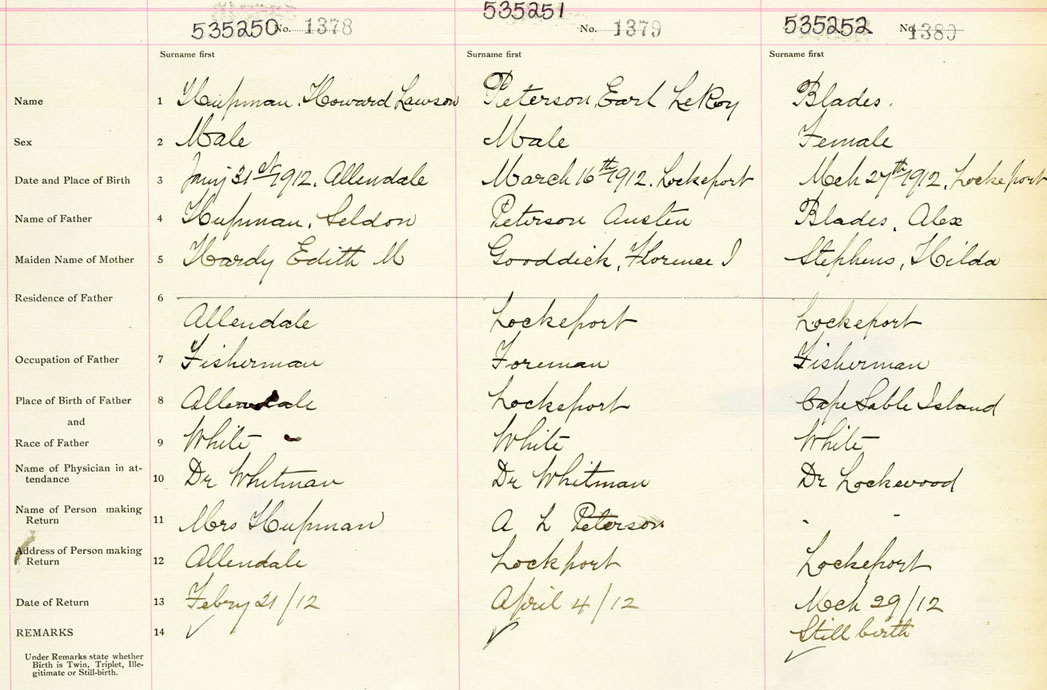 535250 No. 1378
535251 No. 1379
535252 No. 1380
Surname first Surname first Surname first
Name 1 Hupman, Howard Lawson Peterson, Earl LeRoy Blades.
Sex 2 Male Male Female
Date and Place of Birth 3 31st 1912. Allendale March 16th 1912. Lockeport Mch 27th 1912, Lockeport
Name of Father 4 Hupman, Seldon Peterson Austen Blades, Alex
Maiden Name of Mother 5 Hardy Edith M Gooddick, Florence I Stephens, Hilda
Residence of Father 6
Allendale Lockeport Lockeport
Occupation of Father 7 Fisherman Foreman Fisherman
Place of Birth of Father 8 Allendale Lockeport Cape Sable Island
and
Race of Father 9 White White White
Name of Physician in at-
tendance 10 Dr Whitman Dr Whitman Dr Lockwood
Name of Person making
Return 11 Mrs Hupman A L Peterson " "
Address of Person making
Return 12 Allendale Lockport Lockeport
Date of Return 13 Febry 21/12 April 4/12 Mch 29/12
REMARKS 14 ✓ ✓ Still birth ✓
Under Remarks state whether
Birth is Twin, Triplet, Ille-
gitimate or Still-birth.